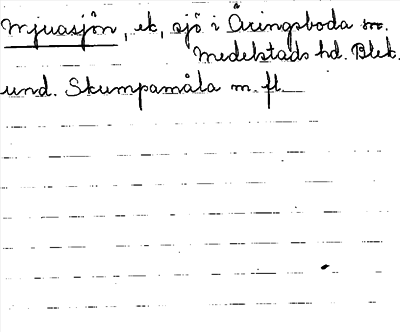 Mjuasjön, ek, sjö i Åringsboda sn.
Medelstads hd. Blek.
und. Skumpamåla m. fl.